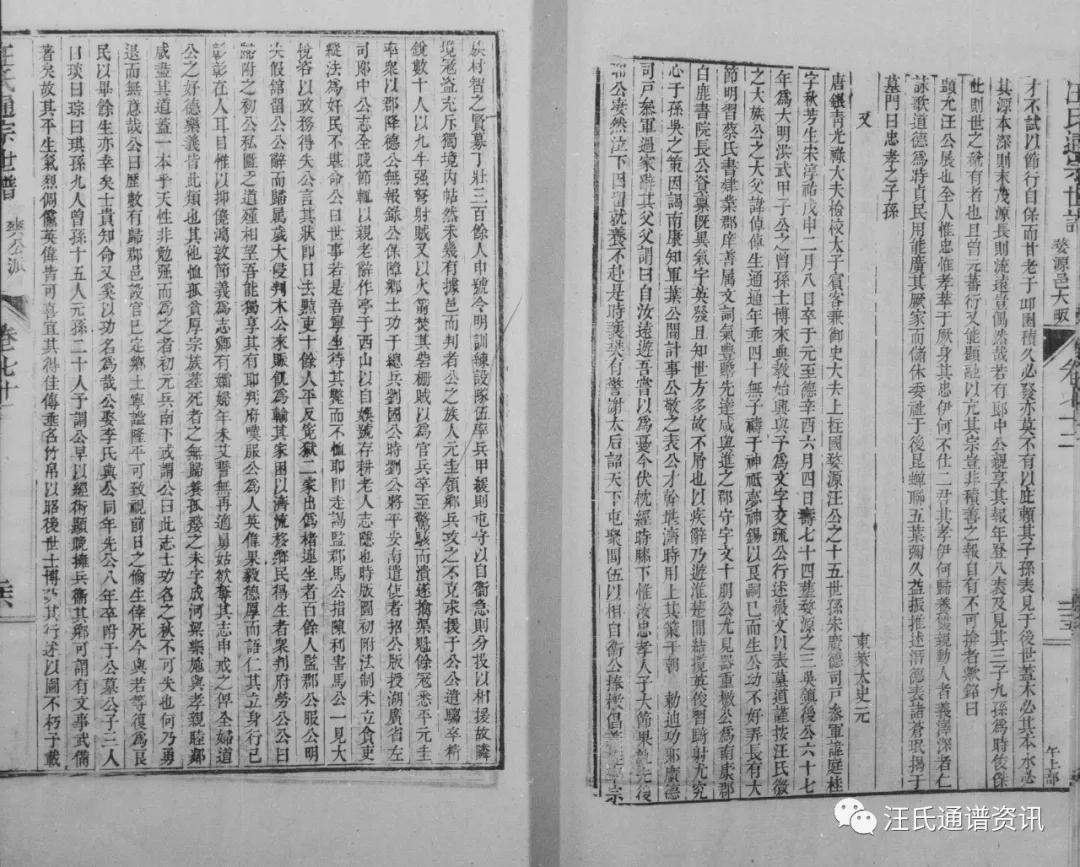 汪氏通宗世譜
婺源邑大畈
卷七十二
才不試以節行自保而甘老于叩困積久必發亦莫不有以庇賴其子孫表見于後世蓋木必其本水必
其源本深則末茂源長則流遠豈偶然哉若有郎中公親享其報年登八袠及見其三子九孫為時俊傑
此則世之希有者也且曾元蕃衍又能顯融以亢其宗豈非積善之報自有不可揜者歟銘曰
顯允汪公展也全人惟忠惟孝萃于厥身其忠伊何不仕二君其孝伊何歸養雙親動人者義澤深者仁
詠歌道德為時貞民用能廣其厥家而儲休委祉于後昆蟬聯五葉獨久益振推述潛德表諸蒼珉揭于
墓門曰忠孝之子孫
又
東萊太史元
唐銀青光祿大夫檢校太子賓客兼御史大夫上柱國婺源汪公之十五世孫朱廣德司戶參軍諱庭桂
字秋芳生宋淳祐戊申二月八日卒于元至德辛酉六月四日壽七十四葬婺源之三吳嶺後公六十七
年為大明洪武甲子公之曾孫士博來典教始與予為文字交疏公行述徵文以表墓道謹按汪氏徽
之大族公之大父諱倬倬生通通年垂四十無子禱于神祇夢神錫以良嗣已而生公幼不好弄長有大
節明習蔡氏書肄業郡庠善屬文詞氣豐贍先達咸與進之郡守字文十朋公尤見器重檄公為南康郡
白鹿書院長公資稟既異氣字英發且知世方多故不屑也以疾辭乃遊淮楚間結攬英俊習騎射尤究
心于孫吳之策因謁南康知軍葉公閶計事公敬之表公才幹堪濟時用上其策于朝 勅迪功郎廣德
司戶參軍過家辭其父父謂曰自汝遠遊吾嘗以為憂今伏枕經時膝下惟汝忠孝人子大節果孰先後
耶公淒然泣下因留就養不赴是時襄樊有警謝太后詔天下屯聚閭伍以相自衛公捧檄倡
午上部
族材智之賢募丁壯三百餘人申號令明訓練設隊伍庤兵甲緩則屯守以自衛急則分投以相援故隣
境寇盜充斥獨境內帖然未幾有據邑而判者公之族人元圭領鄉兵攻之不克求援于公公遣驍卒精
銳數十人以九牛强弩射賊又以火箭焚其砦柵賊以為官兵卒至驚駭而潰遂擒渠魁餘寇悉平元圭
率衆以郡降德公無報錄公保障鄉土功于總兵劉國公時劉公將平安南遣使者招公版授湖廣省左
司郎中公志全晚節輒以親老辭作亭于西山以自娛號存耕老人志隱也時版圖初附法制未立貪吏
縱法為奸民不堪命公曰世事若是吾寧坐待其斃而不恤耶即走謁監郡馬公指陳利害馬公一見大
悅咨以政務得失公言其狀即日去黜吏十餘人平反冤獄二家出為楮連坐者百餘人監郡公服公明
決假館留公公辭而歸屬歲大侵判木公來賑飢為輸其家囷以濟流移鄉民得生者衆判府勞公公曰
歸附之初公私匱乏道殣相望吾能獨享其有耶判府嘆服公為人英偉果毅德厚而語仁其立身行己
彰彰在人耳目惟以抑億鴻敦節義為志鄉有孀婦年未艾誓無再適舅姑欲奪其志申戒之俾全婦道
公之好德樂義皆此類也其他恤孤貧厚宗族葬死者之無歸養孤嫠之未字成河梁藥施與孝親睦鄰
咸盡其道蓋一本乎天性非勉强而為之者初元兵南下或謂公曰此志士功名之秋不可失也何乃勇
退而無意哉公曰歷數有歸郡邑設官已定鄉土寧謐隆平可致視前日之偷生倖死今與若等復為良
民以畢餘生亦幸矣士貴知命又奚以功名為哉公娶李氏與公同年先公八年卒附于公墓公子三人
曰琰曰琮曰琪孫九人曾孫十五人元孫二十人予謂公早以經術顯晚擁兵衛其鄉可謂有文事武備
著矣故其平生氣槩倜儻英偉皆可喜宜其得佳傳垂各竹帛以昭後世士博求其行述以圖不朽予載
汪氏通宗世譜
爽公派
卷七十
汪氏通谱资讯